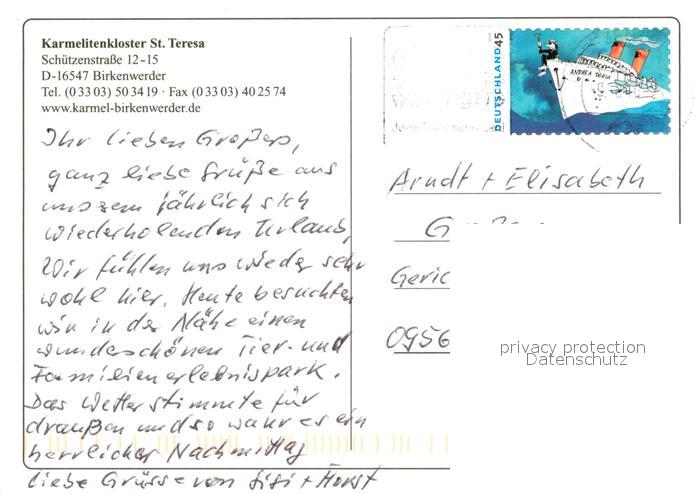 Karmelitenkloster St. Teresa
Schützenstraße 12-15
D-16547 Birkenwerder
Tel. (0 33 03) 50 34 19 · Fax (0 33 03) 40 25 74
www.karmel-birkenwerder.de
Ihr lieben Großers,
ganz liebe Grüße aus
unserem jährlich sich
wiederholenden Urlaub,
Wir fühlen uns wieder sehr
wohl hier. Heute besuchten
wir in der Nähe einen
wunderschönen Tier- und
Familienerlebnispark.
Das Wetter stimmte für
draußen und so war es ein
herrlicher Nachmittag
Liebe Grüsse von Sisi + Horst
DEUTSCHLAND 45
ANDREA DORIA
Arndt + Elisabeth
Geric
0956
privacy protection
Datenschutz